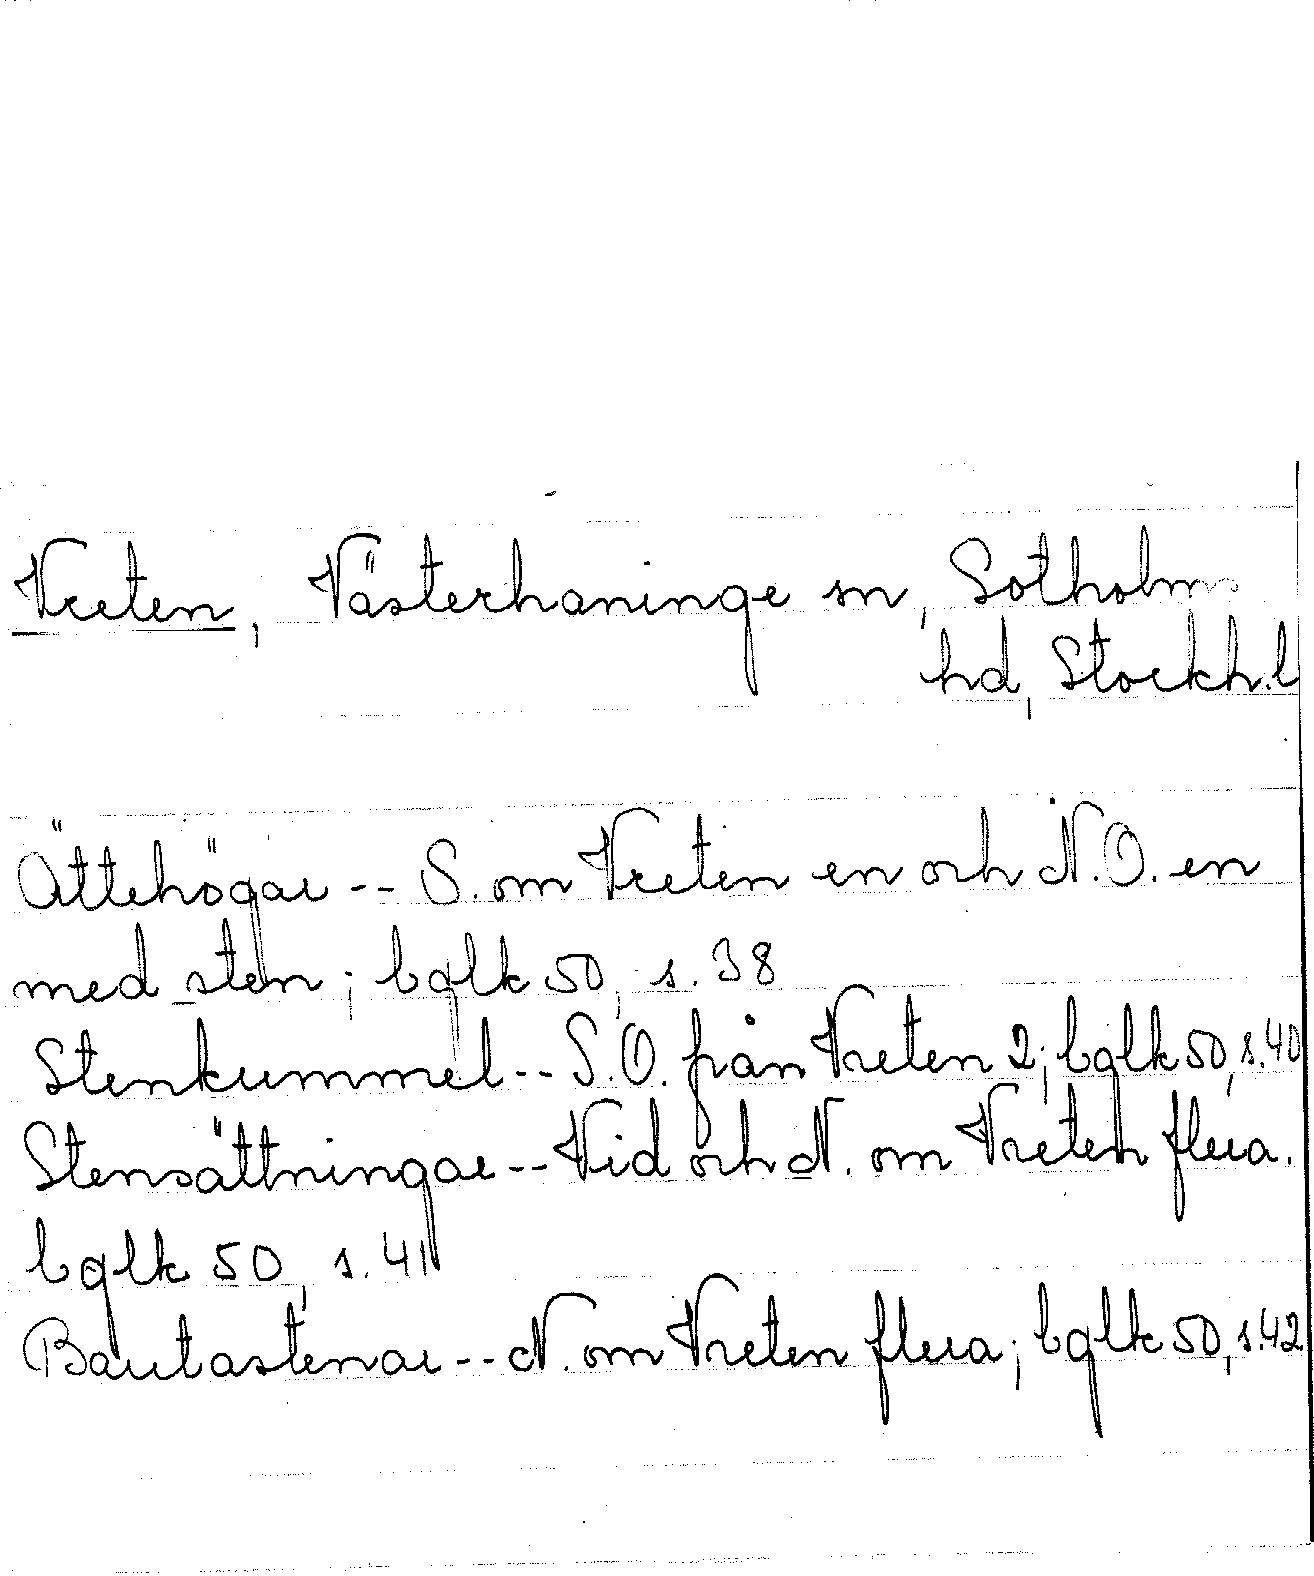 Vreten, Västerhaninge sn, Sotholms
hd, Stockh.l
Ättehögar -- S. om Vreten en och N.O. en
med sten; bglk 50, s. 38
Stenkummel -- S.O. från Vreten 2; bglk 50, s. 40
Stensättningar -- Vid och N. om Vreten flera.
bglk 50, s. 41
Bautastenar -- N. om Vreten flera; bglk 50, s. 42